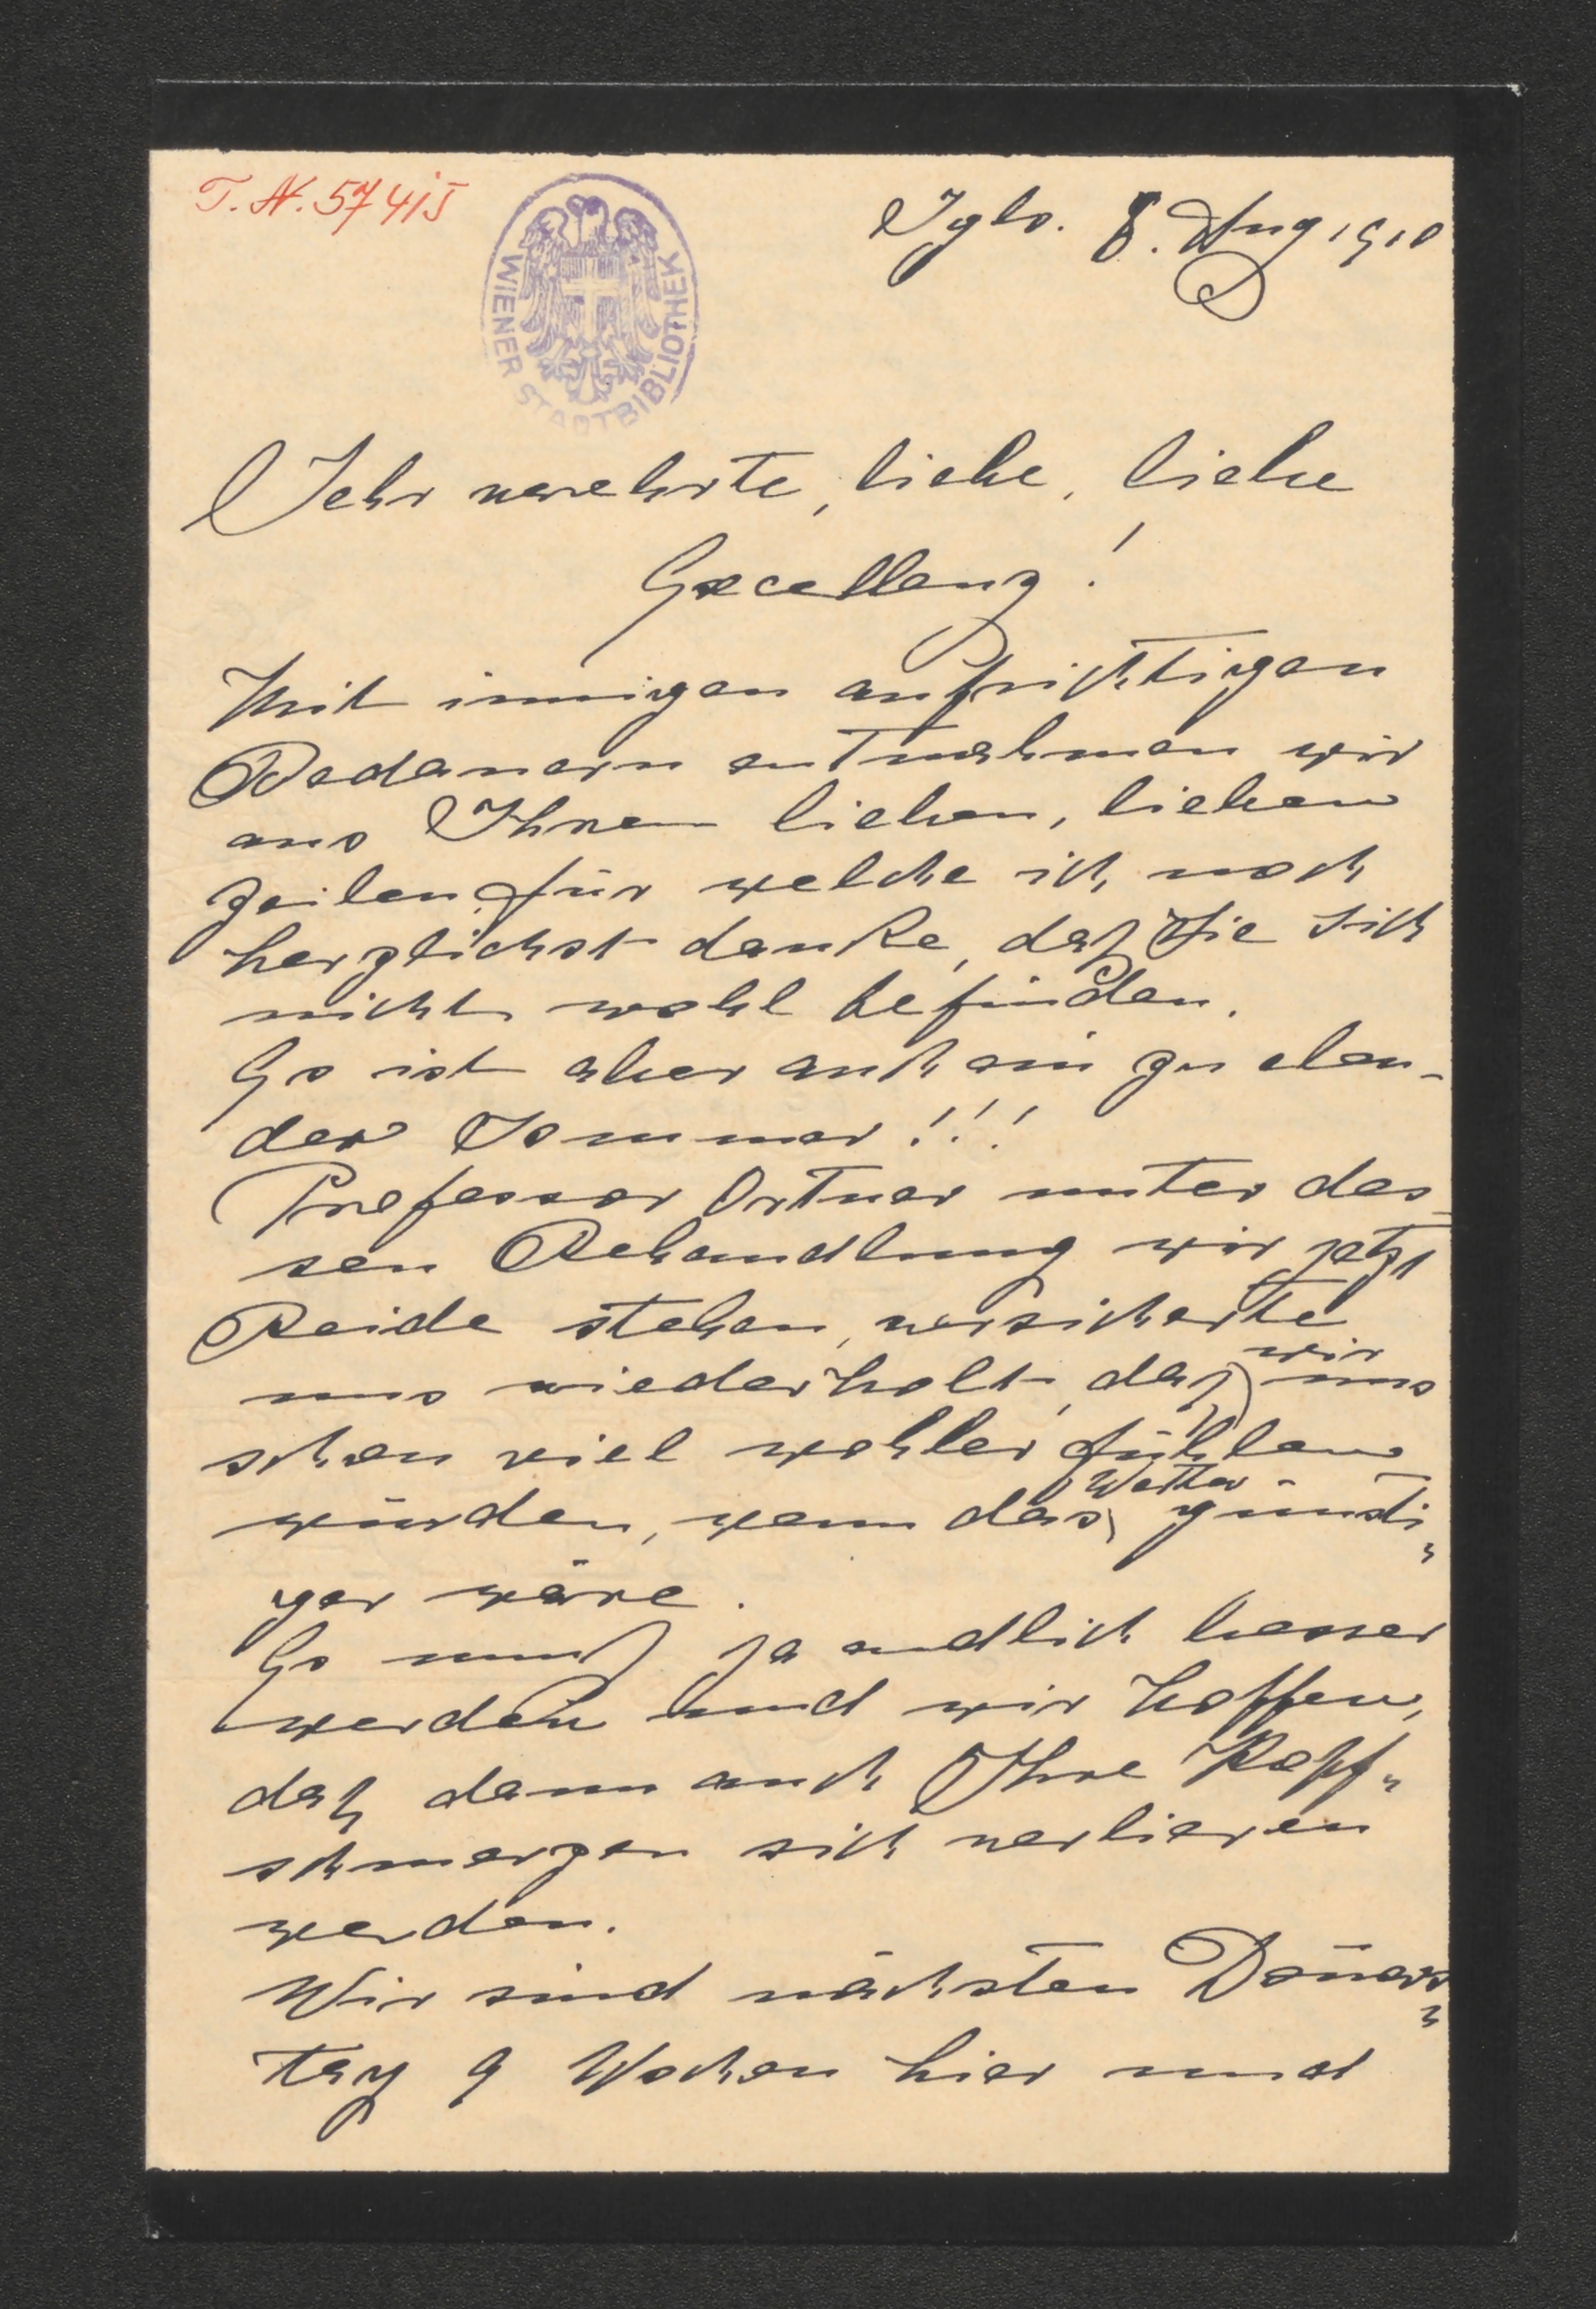 T. N. 57415
WIENER STADTBIBLIOTHEK
Igls. 8. Aug 1910
Sehr verehrte, liebe, liebe
Excellenz!
Mit innigen aufrichtigen
Bedauern entnahmen wir
aus Ihren lieben, lieben
Zeilen, für welche ich noch
herzlichst danke, daß Sie sich
nicht wohl befinden.
Es ist aber auch ein zu elen-
der Sommer!!!
Professor Ortner unter des-
sen Behandlung wir jetzt
Beide stehen, versicherte
uns wiederholt, daß wir uns
schon viel wohler fühlen
würden, wenn das Wetter günsti-
ger wäre.
Es muß ja endlich besser
werden und wir hoffen,
daß dann auch Ihre Kopf-
schmerzen sich verlieren
werden.
Wir sind nächsten Doners-
tag 9 Wochen hier und